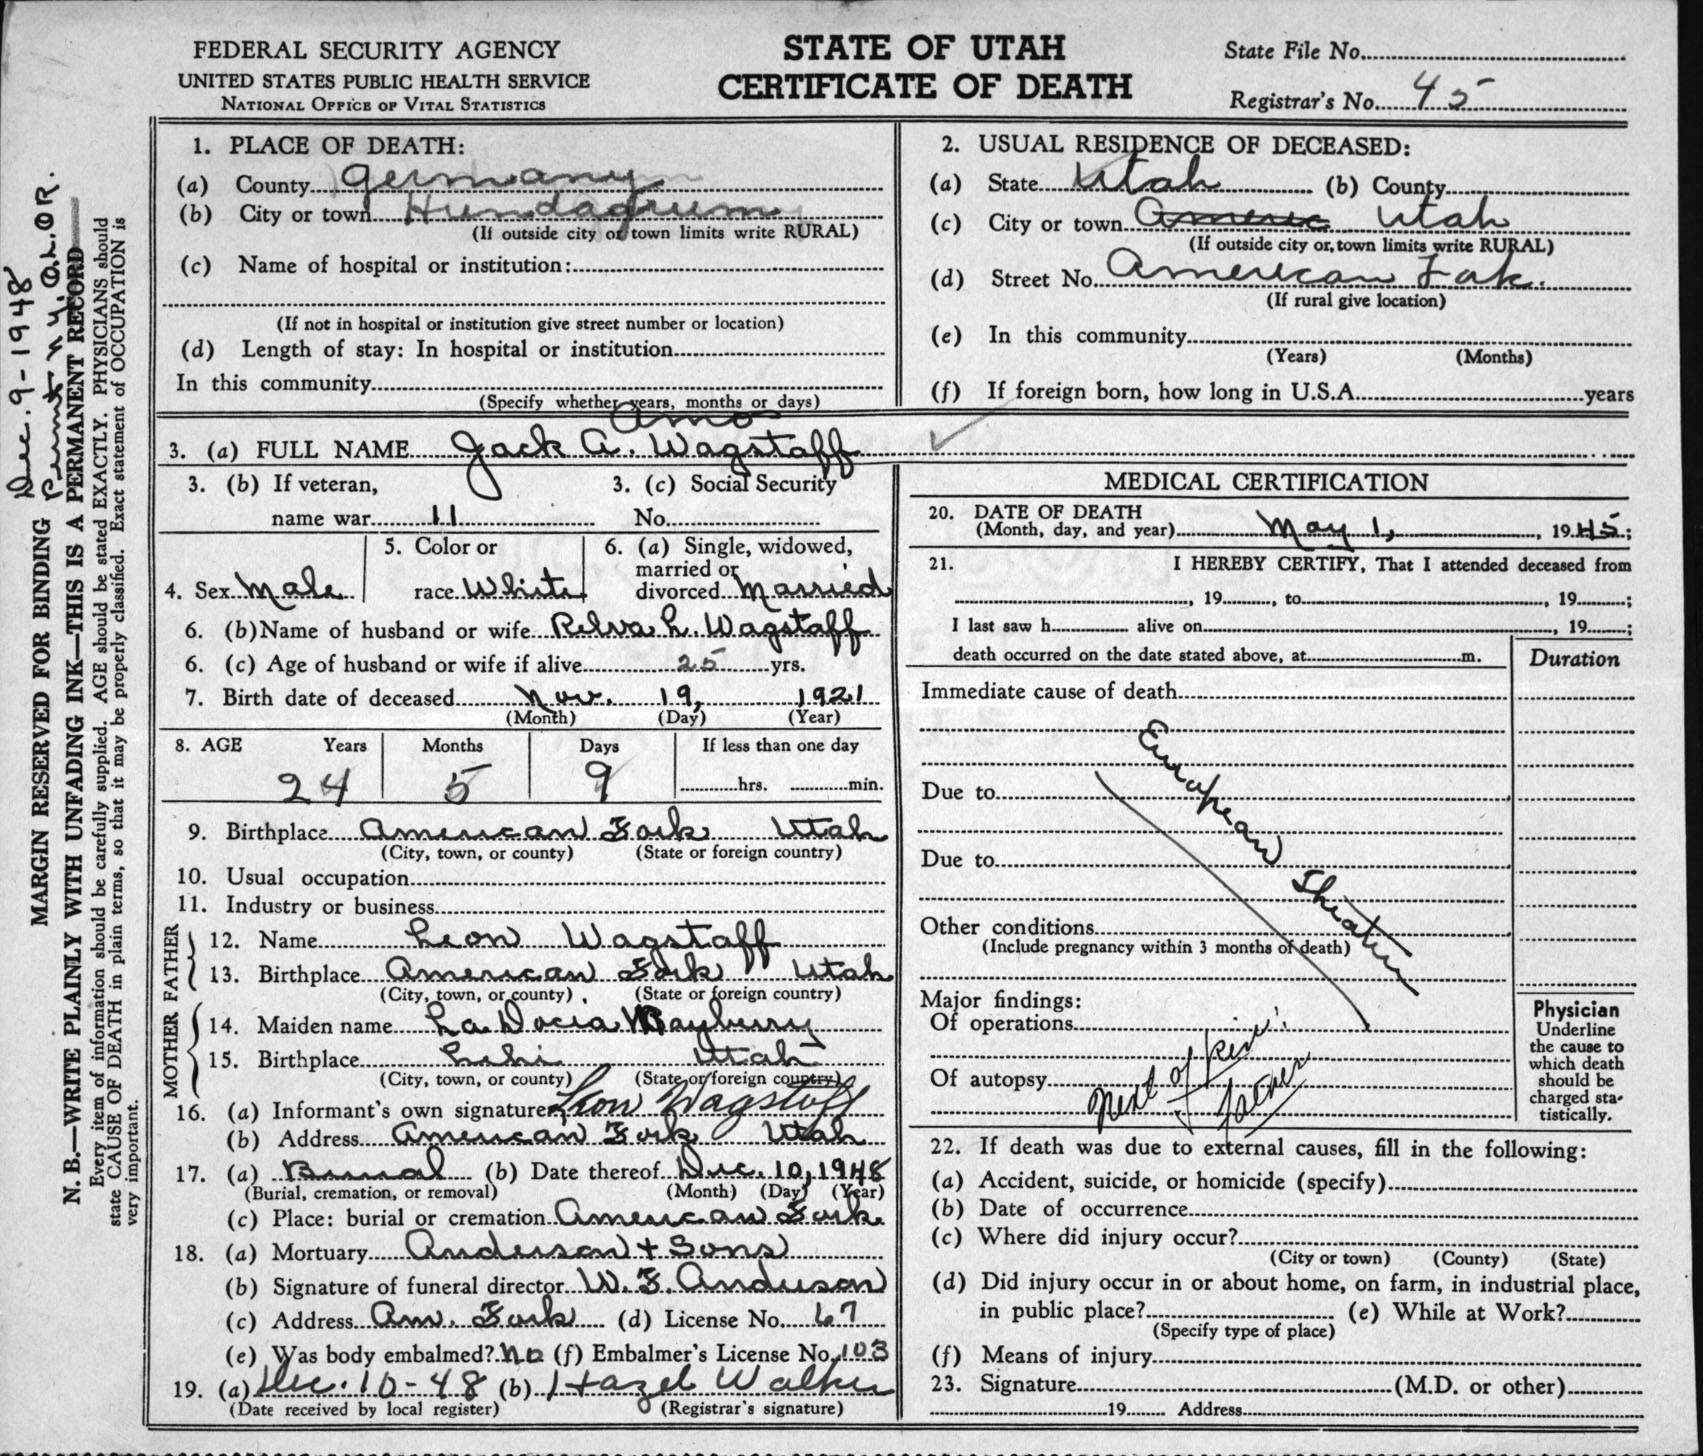 FEDERAL SECURITY AGENCY
UNITED STATES PUBLIC HEALTH SERVICE
NATIONAL OFFICE OF VITAL STATISTICS
STATE OF UTAH
CERTIFICATE OF DEATH
State File No.
Registrar's No. 45
Dec. 9-1948
Permit N.Y.
MARGIN RESERVED FOR BINDING
N. B.—WRITE PLAINLY WITH UNFADING INK—THIS IS A PERMANENT RECORD
Every item of information should be carefully supplied. AGE should be stated EXACTLY. PHYSICIANS should
state CAUSE OF DEATH in plain terms, so that it may be properly classified. Exact statement of OCCUPATION is
very important.
1. PLACE OF DEATH:
(a) County Germany
(b) City or town
(If outside city or town limits write RURAL)
(c) Name of hospital or institution:
(If not in hospital or institution give street number or location)
(d) Length of stay: In hospital or institution
In this community
(Specify whether years, months or days)
2. USUAL RESIDENCE OF DECEASED:
(a) State Utah (b) County
(c) City or town Americ Utah
(If outside city or town limits write RURAL)
(d) Street No. American Fork.
(If rural give location)
(e) In this community
(Years) (Months)
(f) If foreign born, how long in U.S.A. years
Amo
3. (a) FULL NAME Jack A. Wagstaff
3. (b) If veteran, 3. (c) Social Security
name war 11 No.
4. Sex Male
5. Color or
race White
6. (a) Single, widowed,
married or
divorced Married
6. (b) Name of husband or wife Relva L. Wagstaff
6. (c) Age of husband or wife if alive 25 yrs.
7. Birth date of deceased Nov. 19, 1921
(Month) (Day) (Year)
8. AGE Years Months Days If less than one day
24 5 9 hrs. min.
9. Birthplace American Fork Utah
(City, town, or county) (State or foreign country)
10. Usual occupation
11. Industry or business
FATHER
12. Name Leon Wagstaff
13. Birthplace American Fork Utah
(City, town, or county) (State or foreign country)
MOTHER
14. Maiden name LaDocia Mayberry
15. Birthplace Lehi Utah
(City, town, or county) (State or foreign country)
16. (a) Informant's own signature Leon Wagstaff
(b) Address American Fork Utah
17. (a) Burial (b) Date thereof Dec. 10, 1948
(Burial, cremation, or removal) (Month) (Day) (Year)
(c) Place: burial or cremation American Fork
18. (a) Mortuary Anderson + Sons
(b) Signature of funeral director W. F. Anderson
(c) Address Am. Fork (d) License No. 67
(e) Was body embalmed? No (f) Embalmer's License No. 103
19. (a) Dec. 10-48 (b) Hazel Walker
(Date received by local register) (Registrar's signature)
MEDICAL CERTIFICATION
20. DATE OF DEATH
(Month, day, and year) May 1, 1945;
21. I HEREBY CERTIFY, That I attended deceased from
, 19 , to , 19 ;
I last saw h alive on , 19 ;
death occurred on the date stated above, at m.
Duration
Immediate cause of death
European Theater
Due to
Due to
Other conditions
(Include pregnancy within 3 months of death)
Major findings:
Of operations
Of autopsy
Next of kin:
Father
Physician
Underline
the cause to
which death
should be
charged sta-
tistically.
22. If death was due to external causes, fill in the following:
(a) Accident, suicide, or homicide (specify)
(b) Date of occurrence
(c) Where did injury occur?
(City or town) (County) (State)
(d) Did injury occur in or about home, on farm, in industrial place,
in public place? (e) While at Work?
(Specify type of place)
(f) Means of injury
23. Signature (M.D. or other)
19 Address